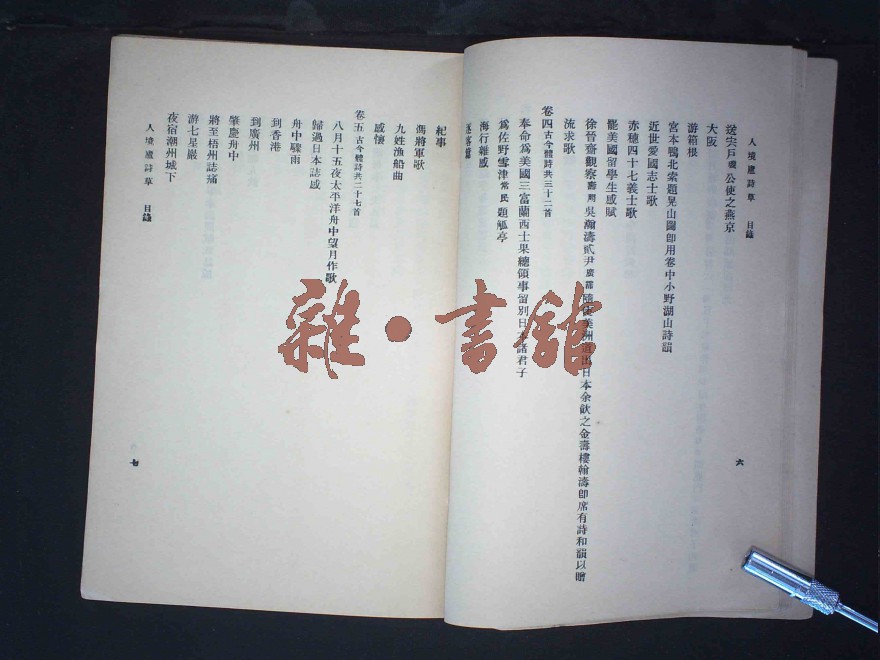 人境廬詩草 目錄
送宍戶璣公使之燕京
大阪
游箱根
宮本鴨北索題晃山圖即用卷中小野湖山詩韻
近世愛國志士歌
赤穗四十七義士歌
罷美國留學生感賦
徐晉齋觀察壽朋吳瀚濤貳尹廣霈隨使美洲道出日本余飲之金壽樓翰濤即席有詩和韻以贈
流求歌
卷四古今體詩共三十二首
奉命為美國三富蘭西士果總領事留別日本諸君子
為佐野雪津常民題觚亭
海行雜感
逐客篇
六
紀事
馮將軍歌
九姓漁船曲
感懷
卷五古今體詩共二十七首
八月十五夜太平洋舟中望月作歌
歸過日本誌感
舟中驟雨
到香港
到廣州
肇慶舟中
將至梧州誌痛
游七星巖
夜宿潮州城下
人境廬詩草 目錄
七
雜·書館